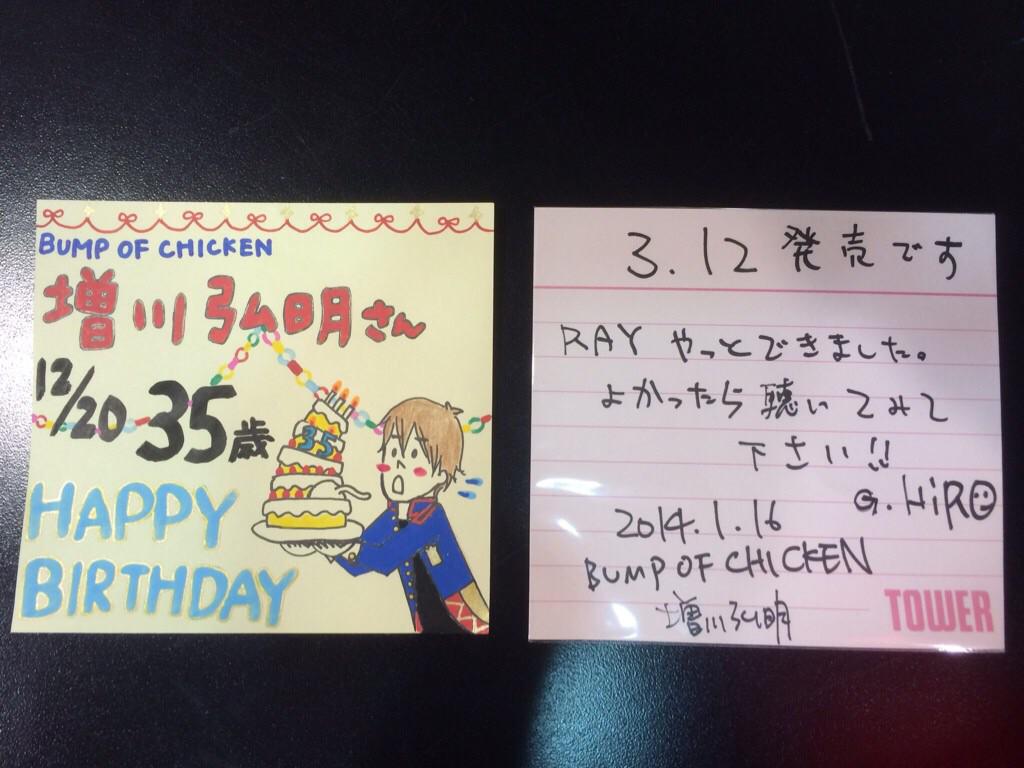 BUMP OF CHICKEN
増川弘明さん
12/20 35歳
35
HAPPY
BIRTHDAY
3.12 発売です
RAY やっとできました。
よかったら聴いてみて
下さい!!
G. HiRO
2014.1.16
BUMP OF CHICKEN
増川弘明
TOWER